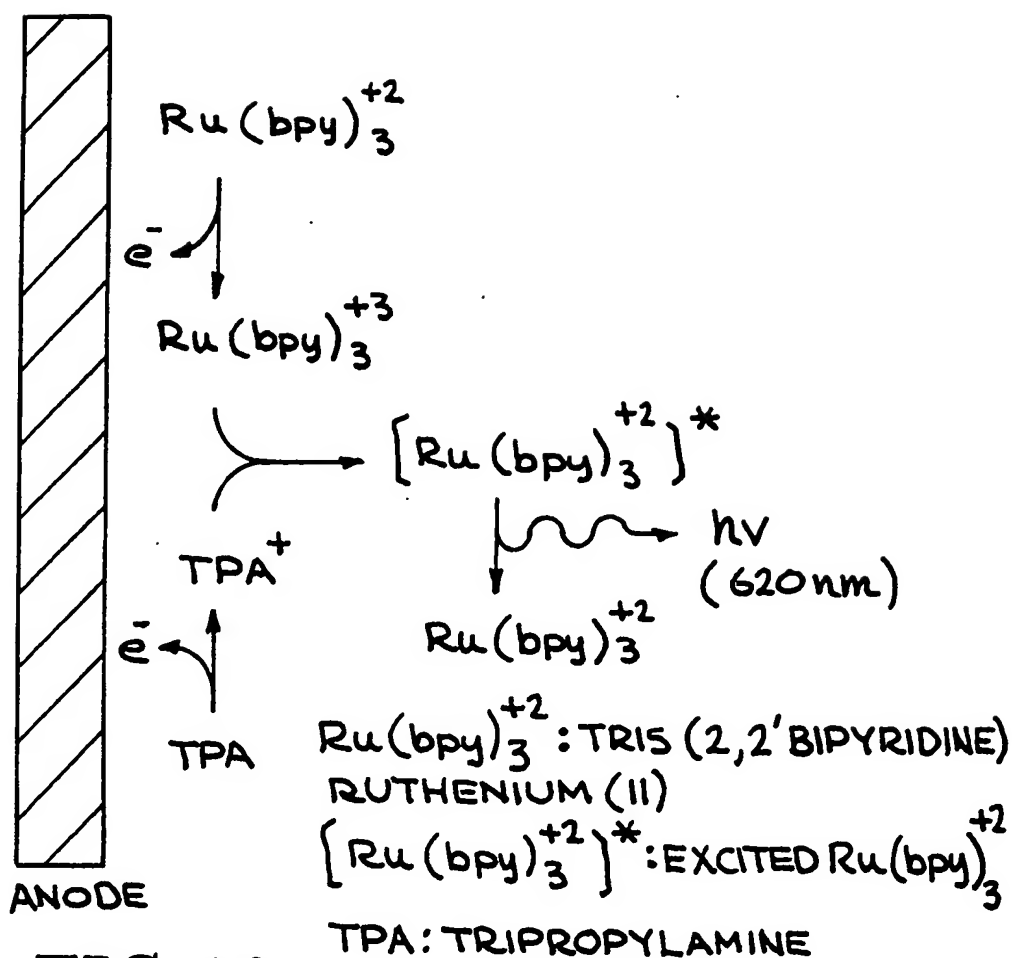 Ru(bpy)₃⁺²
e⁻
Ru(bpy)₃⁺³
[Ru(bpy)₃⁺²]*
hν
(620nm)
TPA⁺
Ru(bpy)₃⁺²
e⁻
TPA
Ru(bpy)₃⁺²: TRIS (2,2' BIPYRIDINE)
RUTHENIUM (II)
[Ru(bpy)₃⁺²]*: EXCITED Ru(bpy)₃⁺²
ANODE
TPA: TRIPROPYLAMINE